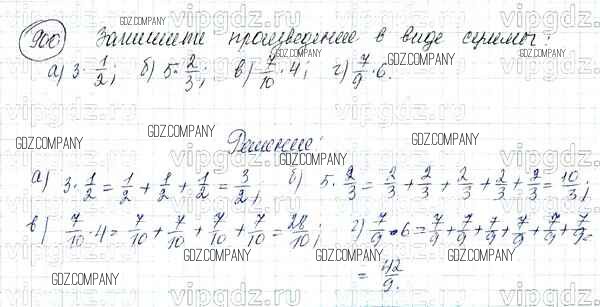 900 Запишите произведение в виде суммы:
а) 3 · 1/2; б) 5 · 2/3; в) 7/10 · 4; г) 7/9 · 6.
Решение:
а) 3 · 1/2 = 1/2 + 1/2 + 1/2 = 3/2; б) 5 · 2/3 = 2/3 + 2/3 + 2/3 + 2/3 + 2/3 = 10/3;
в) 7/10 · 4 = 7/10 + 7/10 + 7/10 + 7/10 = 28/10; г) 7/9 · 6 = 7/9 + 7/9 + 7/9 + 7/9 + 7/9 + 7/9 =
= 42/9.
GDZ.COMPANY
vipgdz.com